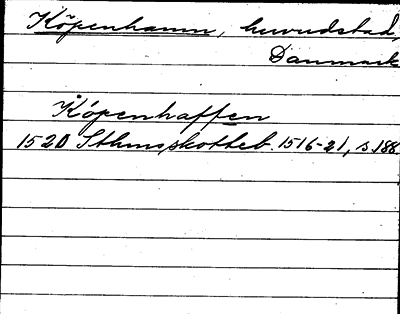 Köpenhamn, huvudstad,
Danmark
Köpenhaffen
1520 Sthmsskotteb. 1516-21, s. 188